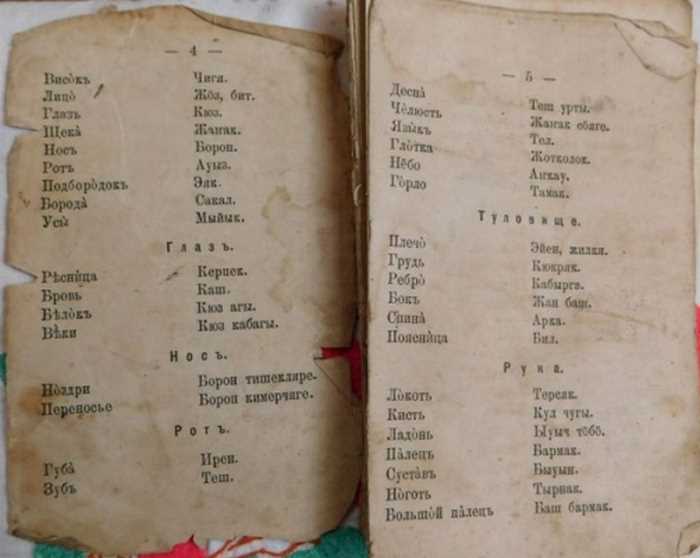 — 4 —
Висо̀къ Чигя.
Лицо̀ Жӧз, бит.
Глазъ Кюз.
Щека̀ Жанак.
Носъ Борон.
Ротъ Ауыз.
Подборо̀докъ Эяк.
Борода̀ Сакал.
Усы̀ Мыйык.
Глазъ.
Рѣснѝца Керпек.
Бровь Каш.
Бѣло̀къ Кюз агы.
Вѣ̀ки Кюз кабагы.
Носъ.
Но̀здри Борон тишекляре.
Переносье Борон кимерчяге.
Ротъ.
Губа̀ Ирен.
Зубъ Теш.
— 5 —
Десна̀ Теш урты.
Чѐлюсть Жанак сӧяге.
Язы̀къ Тел.
Гло̀тка Жотколок.
Нёбо Анкау.
Го̀рло Тамак.
Туловище.
Плечо̀ Эйен, жилкя.
Грудь Кюкряк.
Ребро̀ Кабырга.
Бокъ Жан баш.
Спина̀ Арка.
Пояснѝца Бил.
Рука.
Ло̀коть Терсяк.
Кисть Кул чугы.
Ладо̀нь Ыуыч тӧбӧ.
Па̀лецъ Бармак.
Суста̀въ Быуын.
Но̀готь Тырнак.
Большо̀й па̀лецъ Баш бармак.